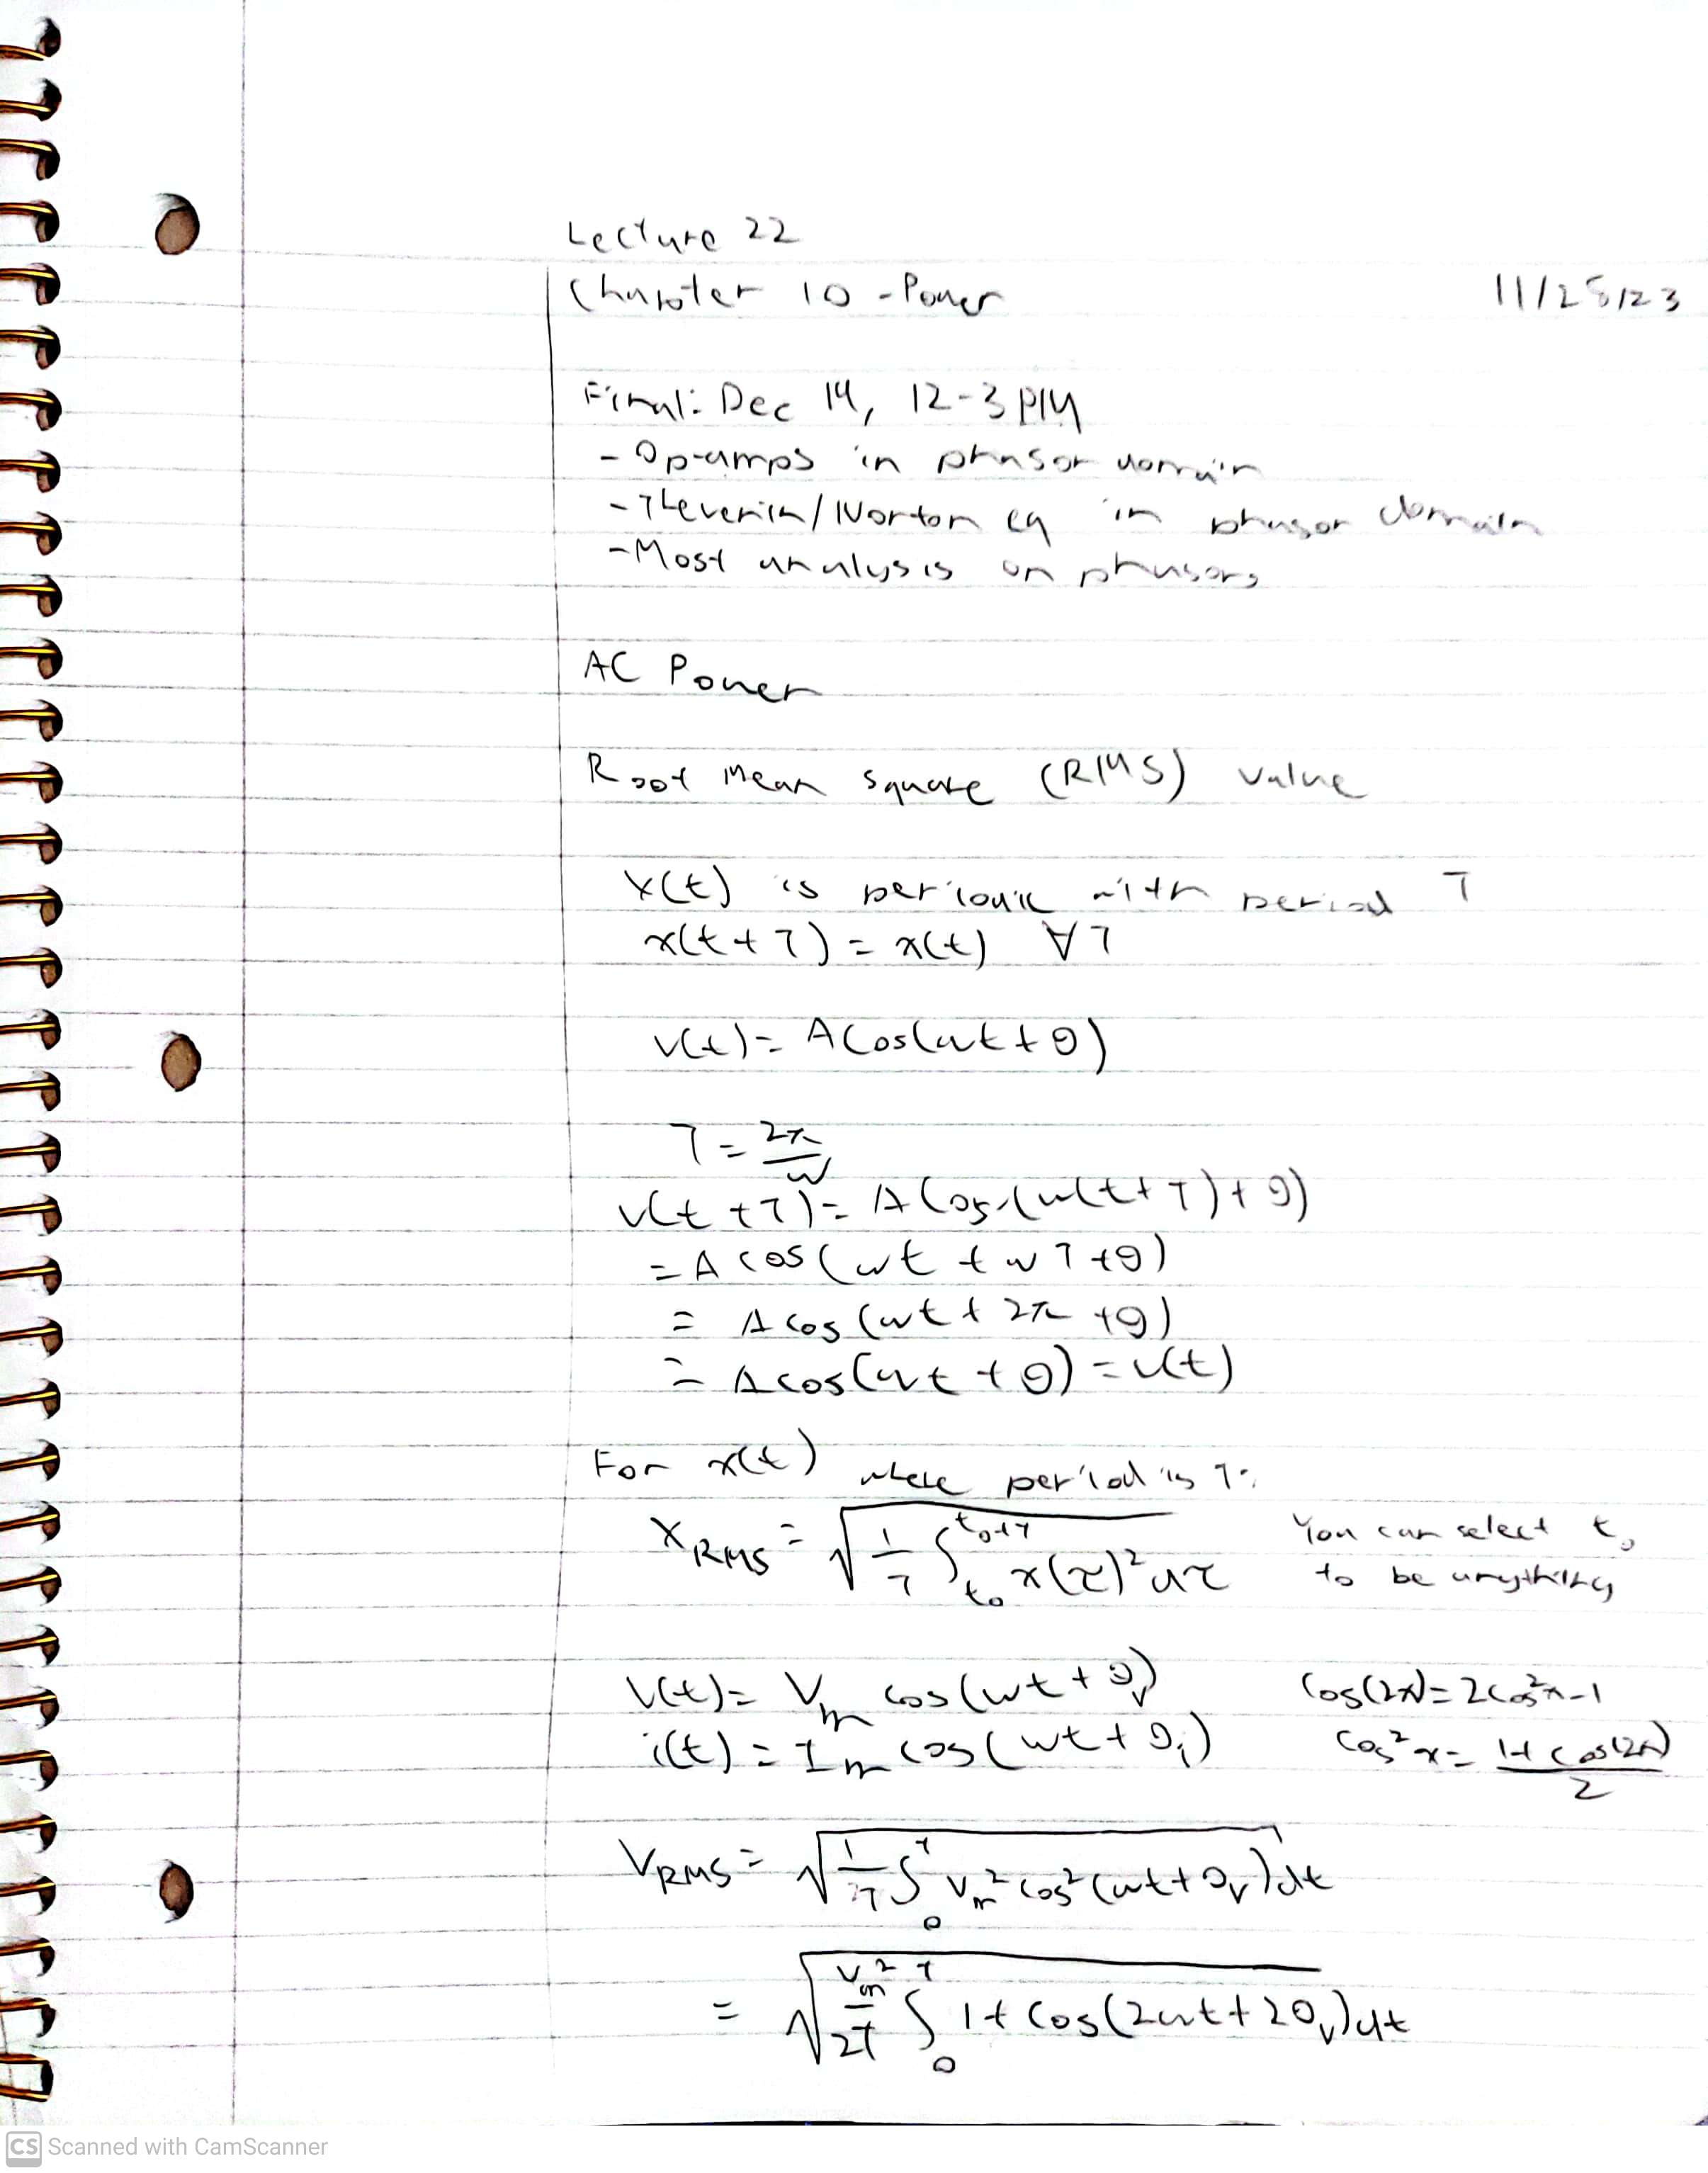 Lecture 22
Chapter 10 - Power 11/28/23
Final: Dec 14, 12-3 PM
- Op-amps in phasor domain
- Thevenin/Norton eq in phasor domain
- Most analysis on phasors
AC Power
Root Mean Square (RMS) value
x(t) is periodic with period T
x(t+T) = x(t) ∀T
v(t) = A cos(ωt + θ)
T = 2π/ω
v(t+T) = A cos(ω(t+T) + θ)
= A cos(ωt + ωT + θ)
= A cos(ωt + 2π + θ)
= A cos(ωt + θ) = v(t)
For x(t) where period is T:
X_RMS = √(1/T ∫_{t₀}^{t₀+T} x(τ)² dτ) You can select t₀
to be anything
v(t) = V_m cos(ωt + θ_v) cos(2x) = 2cos²x - 1
i(t) = I_m cos(ωt + θ_i) cos²x = (1 + cos(2x))/2
V_RMS = √(1/T ∫₀^T V_m² cos²(ωt + θ_v) dt
= √(V_m²/2T ∫₀^T 1 + cos(2ωt + 2θ_v) dt
CS Scanned with CamScanner